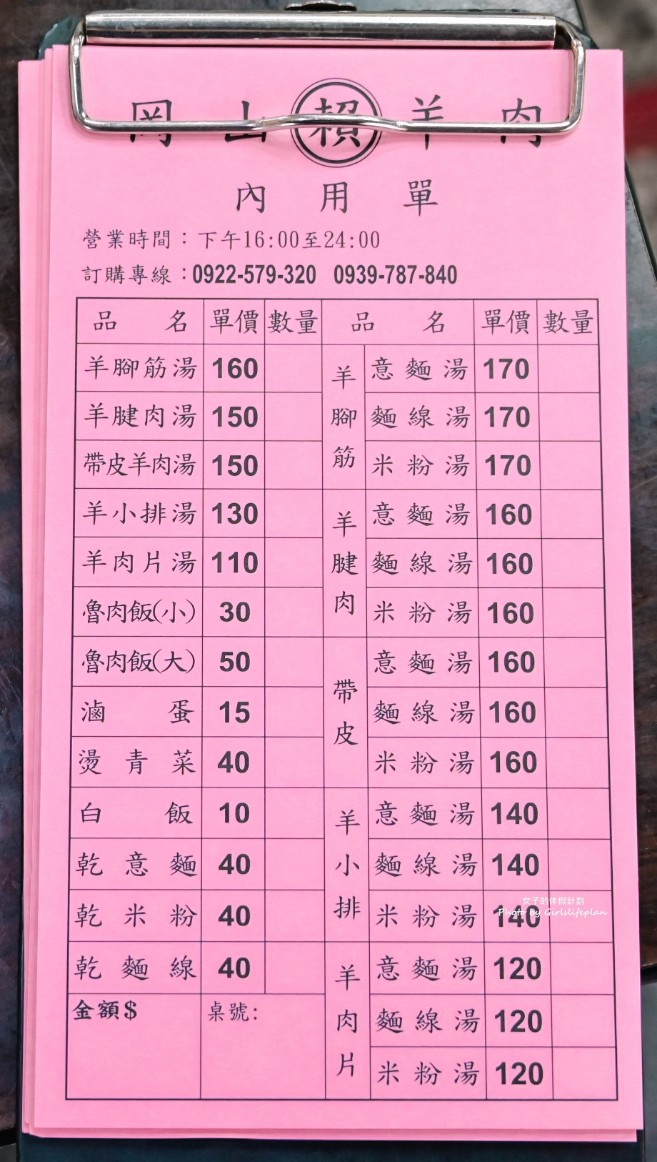 岡山賴羊肉
內用單
營業時間：下午16:00至24:00
訂購專線：0922-579-320 0939-787-840
品名 單價 數量 品名 單價 數量
羊腳筋湯 160
羊腱肉湯 150
帶皮羊肉湯 150
羊小排湯 130
羊肉片湯 110
魯肉飯(小) 30
魯肉飯(大) 50
滷蛋 15
燙青菜 40
白飯 10
乾意麵 40
乾米粉 40
乾麵線 40
金額$ 桌號:
羊腳筋
意麵湯 170
麵線湯 170
米粉湯 170
羊腱肉
意麵湯 160
麵線湯 160
米粉湯 160
帶皮
意麵湯 160
麵線湯 160
米粉湯 160
羊小排
意麵湯 140
麵線湯 140
米粉湯 140
羊肉片
意麵湯 120
麵線湯 120
米粉湯 120
Photo by Girlslifeplan